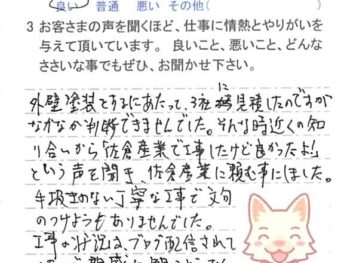 良い 普通 悪い その他( )
3 お客さまの声を聞くほど、仕事に情熱とやりがいを
与えて頂いています。良いこと、悪いこと、どんな
ささいな事でもぜひ、お聞かせ下さい。
外壁塗装をするにあたって、3社に見積したのですが
なかなか判断できませんでした。そんな時近くの知
り合いから「佐倉産業で工事したけど良かったよ!」
という声を聞き、佐倉産業に頼む事にしました。
手抜きのない丁寧な工事で文句
のつけようもありませんでした。
工事の状況は、ブログ配信されて